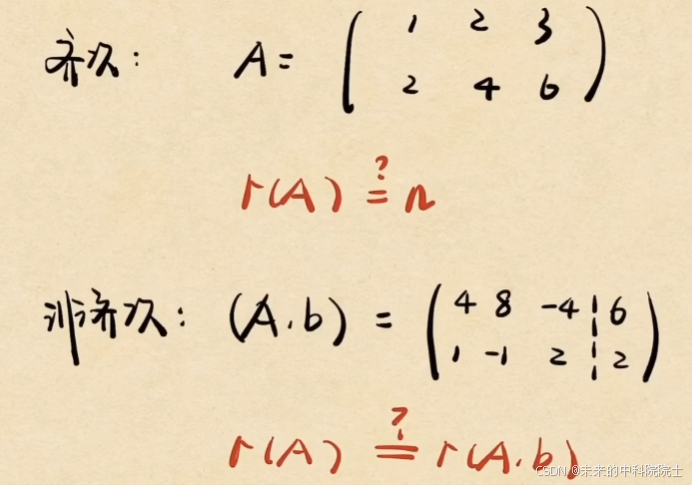 齐次: A = ( 1 2 3
2 4 6 )
r(A) ?= n
非齐次: (A.b) = ( 4 8 -4 ¦ 6
1 -1 2 ¦ 2 )
r(A) ?= r(A.b)
CSDN @未来的中科院院士